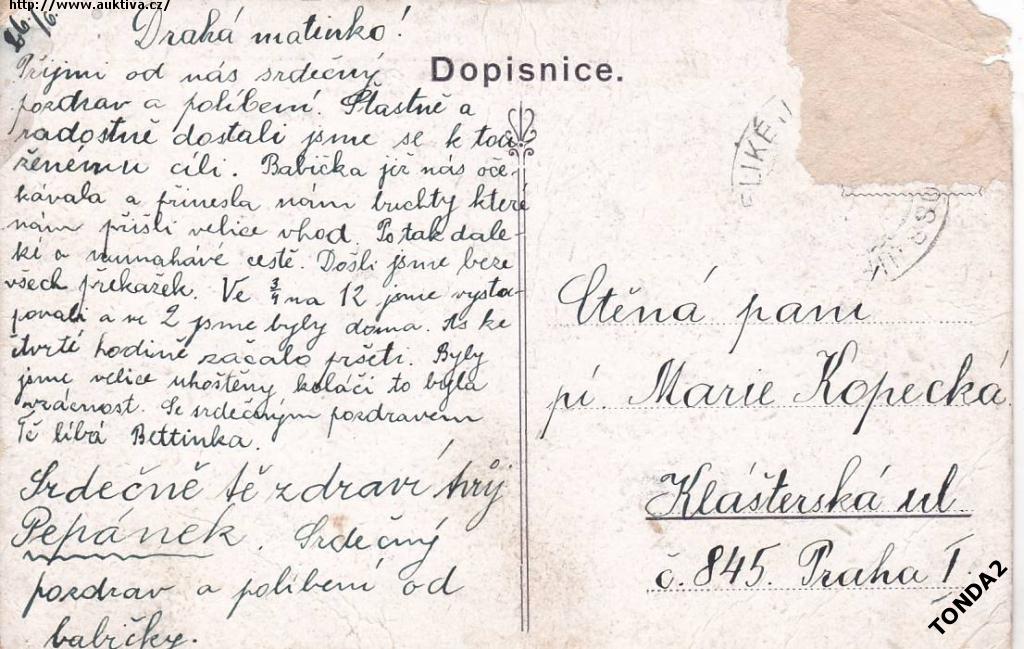 http://www.auktiva.cz/
26/6.
Drahá matinko!
Přijmi od nás srdečný
pozdrav a políbení. Šťastně a
radostně dostali jsme se k tou
ženému cíli. Babička již nás oče-
kávala a přinesla nám buchty které
nám přišli velice vhod. Po tak dale-
ké a namahávé cestě. Došli jsme beze
všech překažek. Ve ¾ na 12 jsme vysto-
povali a ve 2 jsme byly doma. As ke
čtvrté hodině začalo pršeti. Byly
jsme velice uhoštěny koláči to byla
vzácnost. Se srdečným pozdravem
Tě líbá Bettinka.
Srdečně tě zdraví tvůj
Pepánek. Srdečný
pozdrav a políbení od
babičky.
Dopisnice.
Ctěná paní
pí. Marie Kopecká
Klášterská ul
č. 845. Praha I.
TONDA2